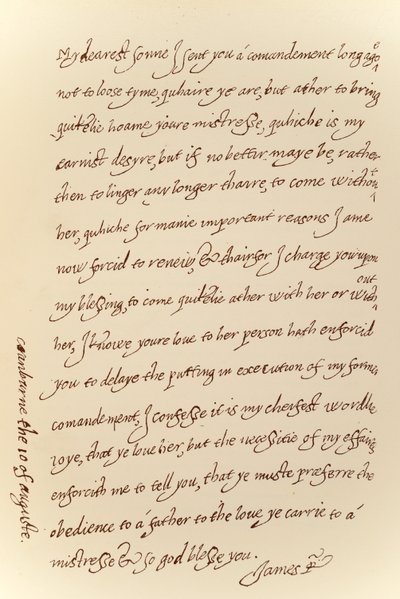 My dearest sonne I sent you a comandement long agoe
not to loose tyme, quhaire ye are, but ather to bring
quikelie hoame youre mistresse, quhiche is my
earnist desyre, but if no better maye be, rather
then to linger any longer thaire, to come without
her, quhiche for manie important reasons I ame
now forcid to renew, & thairfor I charge you upon
my blessing, to come quikelie ather with her or without
her, I knowe youre love to her person hath enforcid
you to delaye the putting in execution of my former
comandement, I confesse it is my cheifest wordlie
joye, that ye love her, but the necessitie of my effaires
enforcith me to tell you, that ye muste præferre the
obedience to a father to the love ye carrie to a
mistresse & so god blesse you.
James R
cranburne the 10 of auguste.